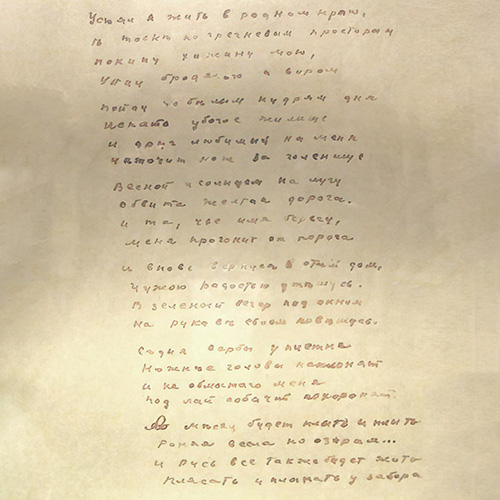 Устал я жить в родном краю,
В тоске по гречневым просторам
Покину хижину мою,
Уйду бродягою и вором
Пойду по белым кудрям дня
Искать убогое жилище
И друг любимый на меня
Наточит нож за голенище
Весной и солнцем на лугу
Обвита желтая дорога.
И та, чье имя берегу,
Меня прогонит от порога
И вновь вернуся в отчий дом,
Чужою радостью утешусь.
В зеленый вечер под окном
На рукаве своем повешусь.
Седые вербы у плетня
Нежнее головы наклонят
И не обмытого меня
Под лай собачий похоронят.
А месяц будет плыть и плыть
Роняя весла по озерам...
И Русь все так же будет жить
Плясать и плакать у забора